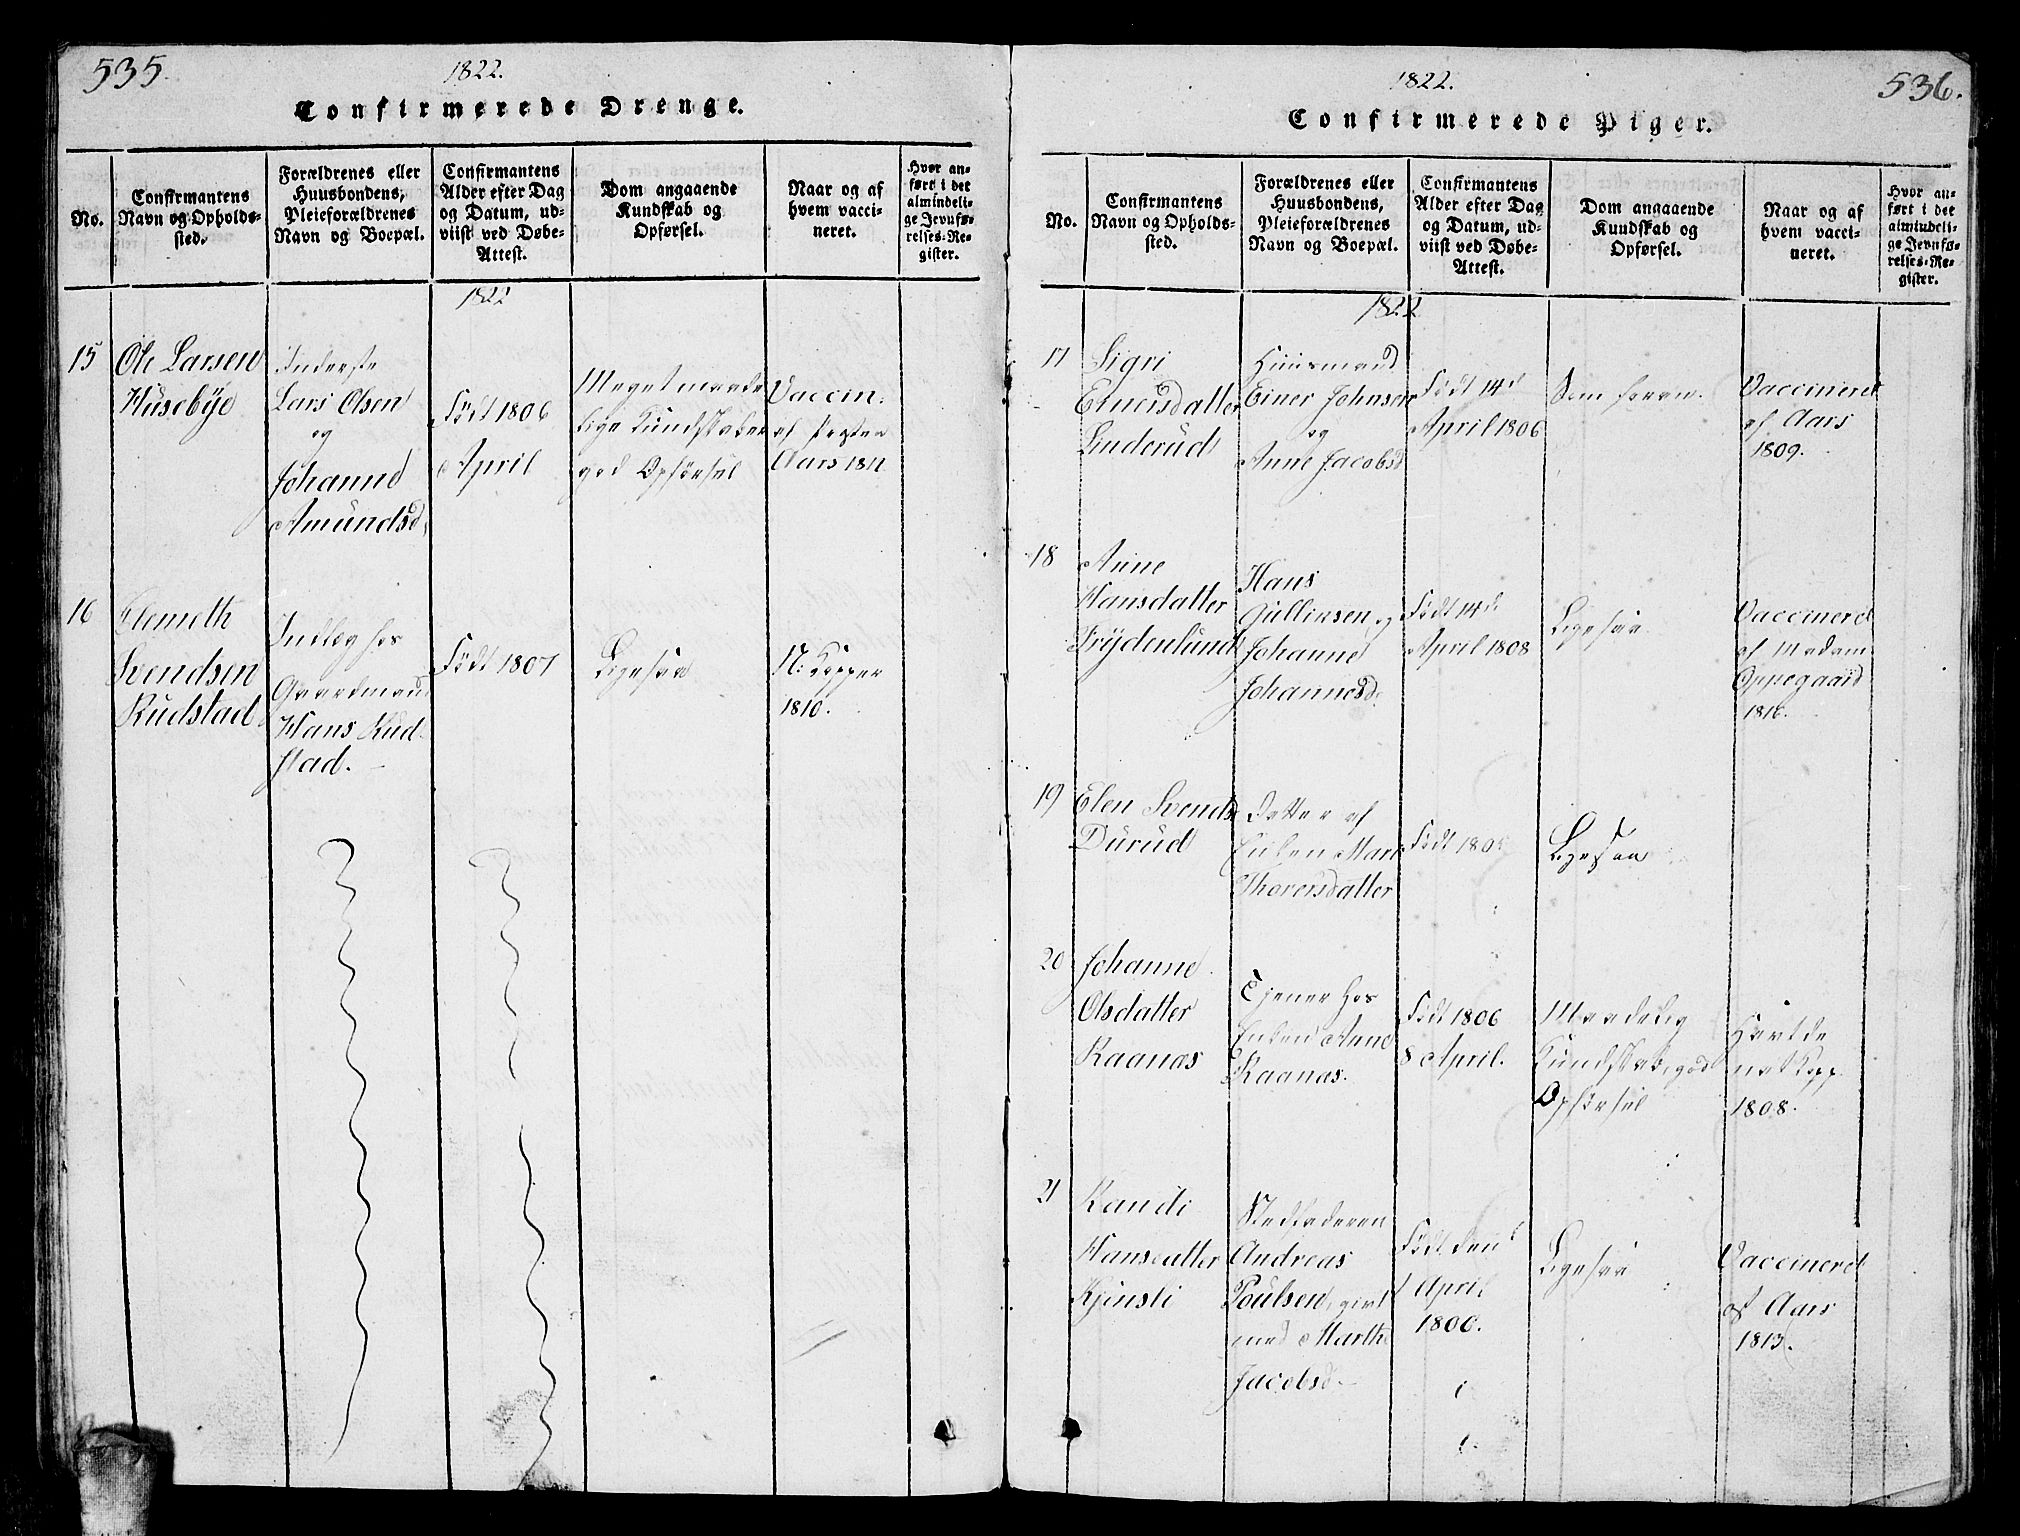 535.
1822.
Confirmerede Drenge.
No.
Confirmantens
Navn og Opholds-
sted.
Forældrenes eller
Huusbondens,
Pleieforældrenes
Navn og Boepæl.
Confirmantens
Alder efter Dag
og Datum, ud-
viist ved Døbe-
Attest.
Dom angaaende
Kundskab og
Opførsel.
Naar og af
hvem vacci-
neret.
Hvor an-
ført i det
almindeli-
ge Jevnfø-
relses-Re-
gister.
1822
15
Ole Larsen
Husebÿe
Inderste
Lars Olsen
og
Johanne
Amundsd.
Födt 1806
April
Meget maade
lige Kundskaber
god Opförsel
Vaccin:
af Præsten
Aars 1811
16
Clemeth
Svendsen
Rudstad
Indlæg hos
Gaardmand
Hans Rud-
stad. -
Födt 1807
Ligesaa
N: Kopper
1810.
1822.
536.
Confirmerede Piger.
No.
Confirmantens
Navn og Opholds-
sted.
Forældrenes eller
Huusbondens,
Pleieforældrenes
Navn og Boepæl.
Confirmantens
Alder efter Dag
og Datum, ud-
viist ved Døbe-
Attest.
Dom angaaende
Kundskab og
Opførsel.
Naar og af
hvem vacci-
neret.
Hvor an-
ført i det
almindeli-
ge Jevnfø-
relses-Re-
gister.
1822
17
Sigri
Einersdatter
Linderud
Huusmand
Einer Johnsen
og
Anne Jacobsd
Födt 14d
April 1806
Som forrn.
Vaccineret
af Aars
1809.
18
Anne
Hansdatter
Frÿdenlund
Hans
Gulliksen og
Johanne
Johannesd.
Födt 14d
April 1808
Ligesaa
Vaccineret
af Madam
Oppegaard
1816.
19
Elen Svends
Durud
Datter af
Enken Mari
Thoersdatter
Födt 1805
Ligesaa
20
Johanne
Olsdatter
Raanas
Tjener hos
Enken Anne
Raanas.
Födt 1806
8 April.
Maadelig
Kundskab, god
Opförsel
Havt de
nat Kopp.
1808.
21
Randi
Hansdatter
Kjinsli
Stedfaderen
Andreas
Poulsen, givt
med Marthe
Jacobsd. -
Födt den
April
1806.
Ligesaa
Vaccineret
af Aars
1813.